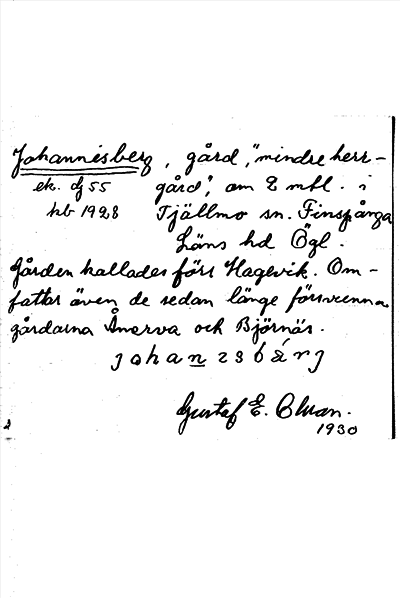 Johannisberg, gård, "mindre herr-
ek. dj 55 gård", om 2 mtl. i
hb 1928 Tjällmo sn. Finspånga
Läns hd Ögl.
Gården kallades förr Hagevik. Om-
fattar även de sedan länge försvunna
gårdarna Ånerva och Björnäs.
Gustaf E.
1930